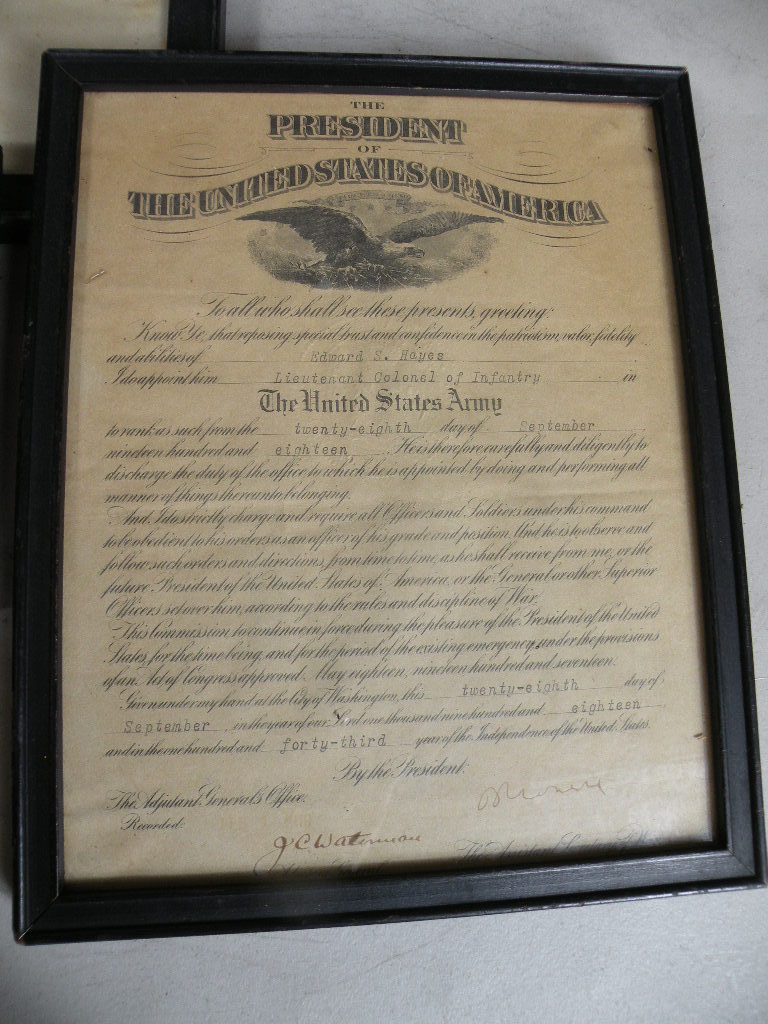 THE
PRESIDENT
OF
THE UNITED STATES OF AMERICA
To all who shall see these presents, greeting:
Know Ye, that reposing special trust and confidence in the patriotism, valor, fidelity
and abilities of Edward S. Hayes
I do appoint him Lieutenant Colonel of Infantry in
The United States Army
to rank as such from the twenty-eighth day of September
nineteen hundred and eighteen. He is therefore carefully and diligently to
discharge the duty of the office to which he is appointed by doing and performing all
manner of things thereunto belonging.
And I do strictly charge and require all Officers and Soldiers under his command
to be obedient to his orders as an officer of his grade and position. And he is to observe and
follow such orders and directions, from time to time, as he shall receive from me, or the
future President of the United States of America, or the General or other Superior
Officers set over him, according to the rules and discipline of War.
This Commission to continue in force during the pleasure of the President of the United
States, for the time being, and for the period of the existing emergency, under the provisions
of an Act of Congress approved May eighteen, nineteen hundred and seventeen.
Given under my hand at the City of Washington, this twenty-eighth day of
September, in the year of our Lord one thousand nine hundred and eighteen,
and in the one hundred and forty-third year of the Independence of the United States.
By the President:
The Adjutant General's Office.
Recorded:
J C Waterman